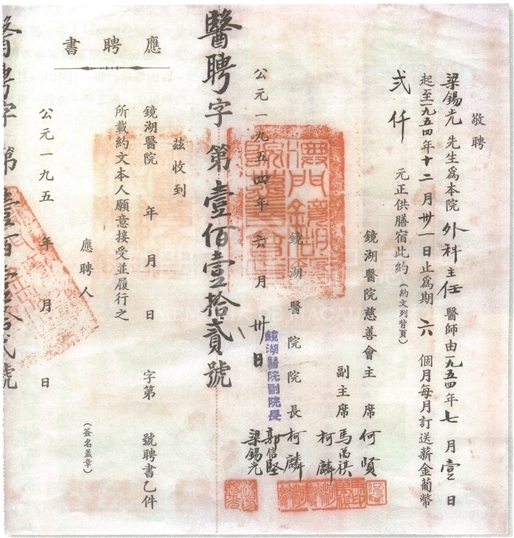 敬聘
梁錫光 先生為本院 外科主任 醫師由一九五四年七月壹日
起至一九五四年十二月卅一日止為期 六 個月每月訂送薪金葡幣
弍仟 元正供膳宿此約(約文列背頁)
鏡湖醫院慈善會主席 何賢
副主席 馬萬祺
柯麟
鏡湖醫院院長 柯麟
鏡湖醫院副院長 郭信堅
梁錫光
公元一九五四年六月卅日
醫聘字第壹佰壹拾貳號
應聘書
茲收到
鏡湖醫院 年 月 日 字第 號聘書乙件
所載約文本人願意接受並履行之
應聘人 (簽名蓋章)
公元一九五 年 月 日